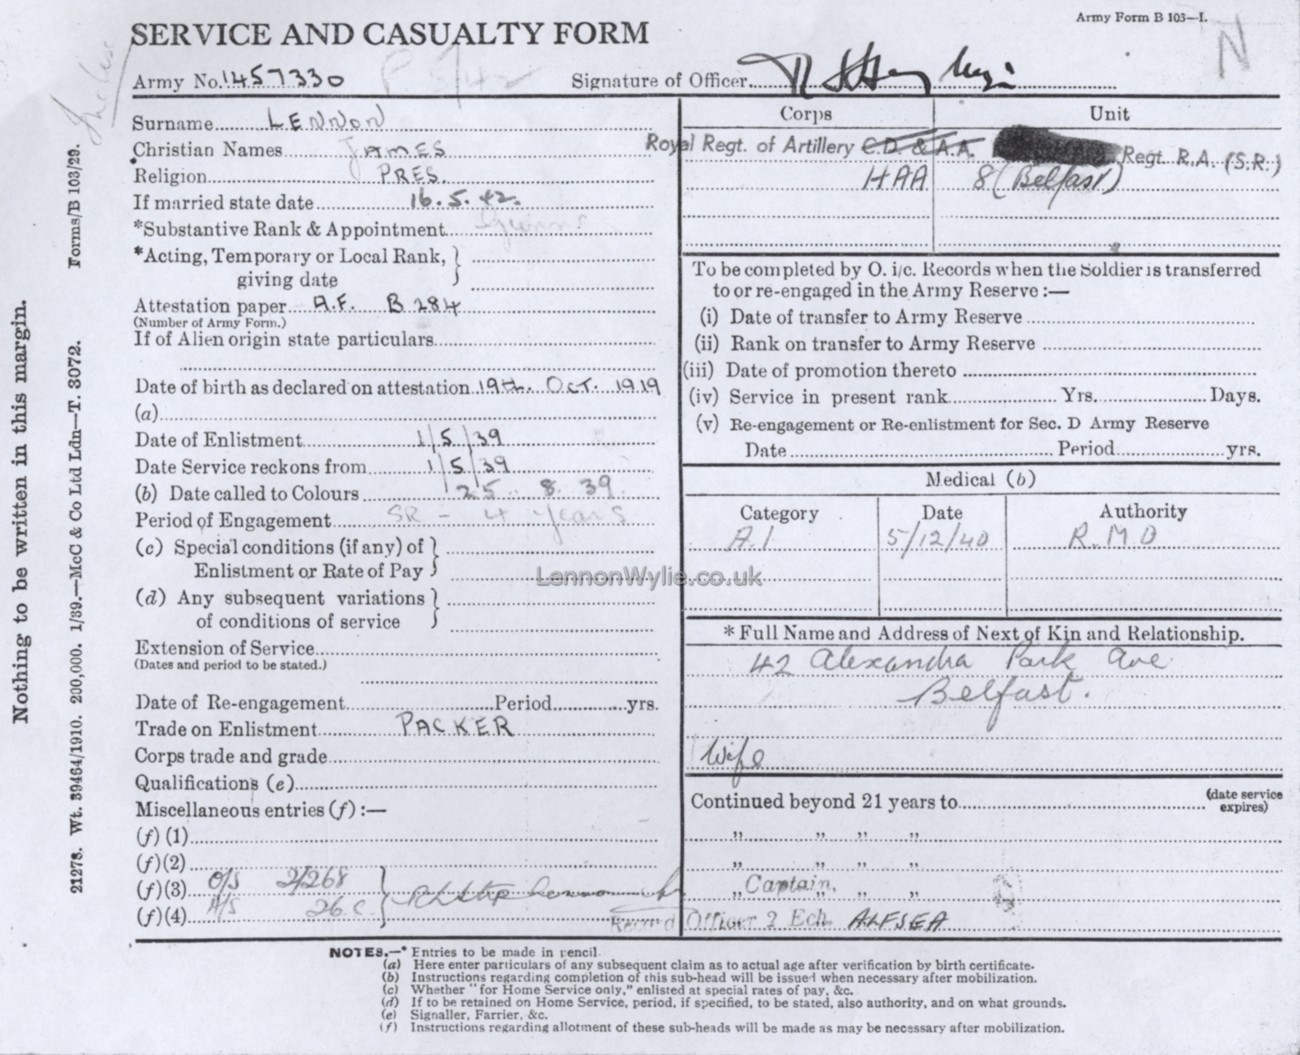 Army Form B 103—I.
SERVICE AND CASUALTY FORM
N
Army No. 1457330
P 5/42
Signature of Officer
Surname LENNON
Christian Names JAMES
Religion PRES.
If married state date 16.5.42.
*Substantive Rank & Appointment
*Acting, Temporary or Local Rank, giving date
Attestation paper A.F. B 284
(Number of Army Form.)
If of Alien origin state particulars
Date of birth as declared on attestation 19th. OCT. 1919
(a)
Date of Enlistment 1/5/39
Date Service reckons from 1/5/39
(b) Date called to Colours 25 8 39
Period of Engagement SR - 4 years
(c) Special conditions (if any) of
Enlistment or Rate of Pay
(d) Any subsequent variations
of conditions of service
Extension of Service
(Dates and period to be stated.)
Date of Re-engagement Period yrs.
Trade on Enlistment PACKER
Corps trade and grade
Qualifications (e)
Miscellaneous entries (f) :—
(f) (1)
(f) (2)
(f) (3) O/S 2/268
(f) (4) 26 C
Corps Unit
Royal Regt. of Artillery C.D. & A.A. Regt. R.A. (S.R.)
HAA 8 (Belfast)
To be completed by O. i/c. Records when the Soldier is transferred
to or re-engaged in the Army Reserve :—
(i) Date of transfer to Army Reserve
(ii) Rank on transfer to Army Reserve
(iii) Date of promotion thereto
(iv) Service in present rank Yrs. Days.
(v) Re-engagement or Re-enlistment for Sec. D Army Reserve
Date Period yrs.
Medical (b)
Category Date Authority
A.1 5/12/40 R.M.O
LennonWylie.co.uk
* Full Name and Address of Next of Kin and Relationship.
42 Alexandra Park Ave
Belfast.
Wife
Continued beyond 21 years to (date service expires)
„ „ „ „
„ „ „ „
„ Captain, „ „
Record Officer 2 Ech. ALFSEA
NOTES.—* Entries to be made in pencil.
(a) Here enter particulars of any subsequent claim as to actual age after verification by birth certificate.
(b) Instructions regarding completion of this sub-head will be issued when necessary after mobilization.
(c) Whether "for Home Service only," enlisted at special rates of pay, &c.
(d) If to be retained on Home Service, period, if specified, to be stated, also authority, and on what grounds.
(e) Signaller, Farrier, &c.
(f) Instructions regarding allotment of these sub-heads will be made as may be necessary after mobilization.
Nothing to be written in this margin.
21278. Wt. 39464/1910. 200,000. 1/39.—McC & Co Ltd Ldn—T. 3072. Forms/B 103/29.